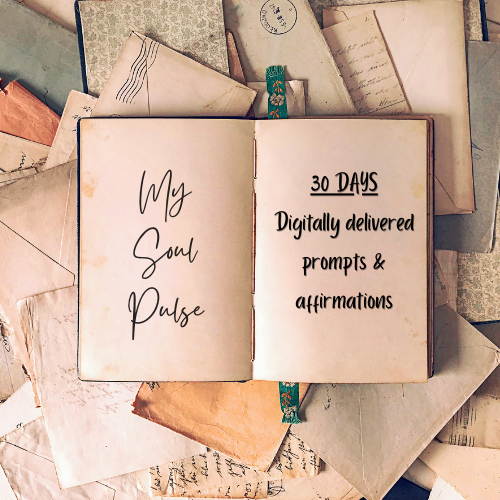 My
Soul
Pulse
30 DAYS
Digitally delivered
prompts &
affirmations